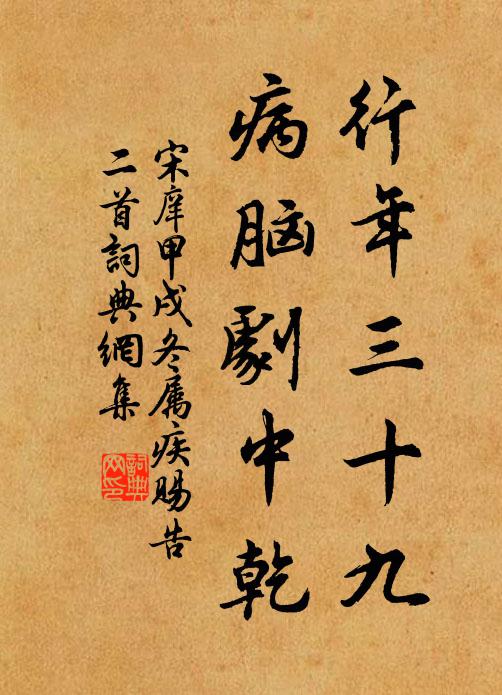 行年三十九
病脑劇中乾
宋庠甲戌冬属疾賜告
二首詞典網集
詞典网印